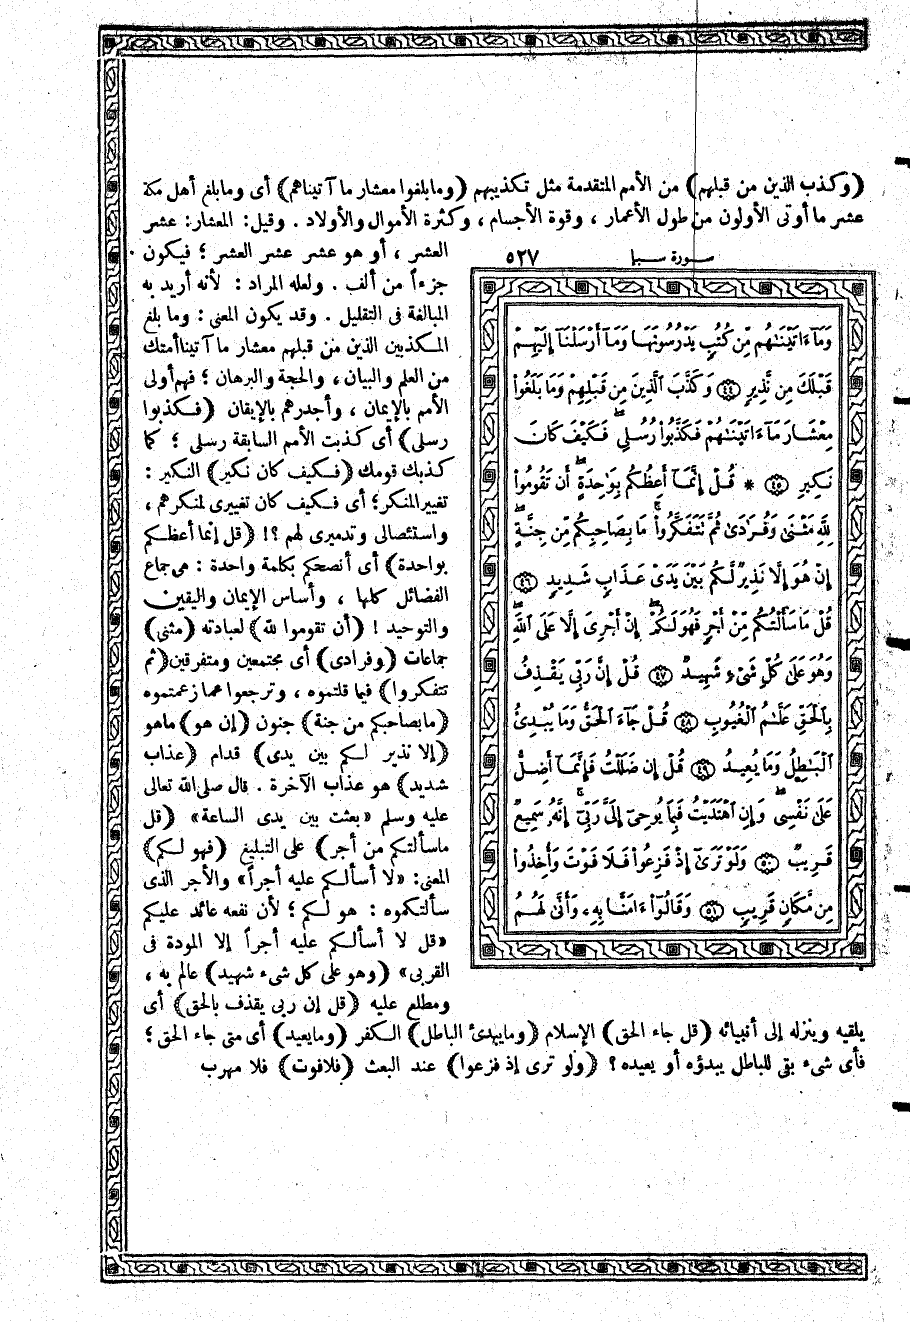 (وكذب الذين من قبلهم) من الأمم المتقدمة مثل تكذيبهم (وما بلغوا معشار ما آتيناهم) أى وما بلغ أهل مكة
عشر ما أوتى الأولون من طول الأعمار ، وقوة الأجسام ، وكثرة الأموال والأولاد . وقيل: المعشار: عشر
سورة سبإ ٥٢٧
وَمَآ ءَاتَيْنَٰهُم مِّن كُتُبٍ يَدْرُسُونَهَا وَمَآ أَرْسَلْنَآ إِلَيْهِمْ
قَبْلَكَ مِن نَّذِيرٍ ﴿٤٤﴾ وَكَذَّبَ الَّذِينَ مِن قَبْلِهِمْ وَمَا بَلَغُوا۟
مِعْشَارَ مَآ ءَاتَيْنَٰهُمْ فَكَذَّبُوا۟ رُسُلِى ۖ فَكَيْفَ كَانَ
نَكِيرِ ﴿٤٥﴾ * قُلْ إِنَّمَآ أَعِظُكُم بِوَٰحِدَةٍ ۖ أَن تَقُومُوا۟
لِلَّهِ مَثْنَىٰ وَفُرَٰدَىٰ ثُمَّ تَتَفَكَّرُوا۟ ۚ مَا بِصَاحِبِكُم مِّن جِنَّةٍ ۚ
إِنْ هُوَ إِلَّا نَذِيرٌ لَّكُم بَيْنَ يَدَىْ عَذَابٍ شَدِيدٍ ﴿٤٦﴾
قُلْ مَا سَأَلْتُكُم مِّنْ أَجْرٍ فَهُوَ لَكُمْ ۖ إِنْ أَجْرِىَ إِلَّا عَلَى اللَّهِ ۖ
وَهُوَ عَلَىٰ كُلِّ شَىْءٍ شَهِيدٌ ﴿٤٧﴾ قُلْ إِنَّ رَبِّى يَقْذِفُ
بِالْحَقِّ عَلَّٰمُ الْغُيُوبِ ﴿٤٨﴾ قُلْ جَآءَ الْحَقُّ وَمَا يُبْدِئُ
الْبَٰطِلُ وَمَا يُعِيدُ ﴿٤٩﴾ قُلْ إِن ضَلَلْتُ فَإِنَّمَآ أَضِلُّ
عَلَىٰ نَفْسِى ۖ وَإِنِ اهْتَدَيْتُ فَبِمَا يُوحِىٓ إِلَىَّ رَبِّىٓ ۚ إِنَّهُۥ سَمِيعٌ
قَرِيبٌ ﴿٥٠﴾ وَلَوْ تَرَىٰٓ إِذْ فَزِعُوا۟ فَلَا فَوْتَ وَأُخِذُوا۟
مِن مَّكَانٍ قَرِيبٍ ﴿٥١﴾ وَقَالُوٓا۟ ءَامَنَّا بِهِۦ وَأَنَّىٰ لَهُمُ
العشر ، أو هو عشر عشر العشر ؛ فيكون
جزءاً من ألف . ولعله المراد : لأنه أريد به
المبالغة فى التقليل . وقد يكون المعنى : وما بلغ
المكذبين الذين من قبلهم معشار ما آتينا أمتك
من العلم والبيان ، والحجة والبرهان ؛ فهم أولى
الأمم بالإيمان ، وأجدرهم بالإيقان (فكذبوا
رسلى) أى كذبت الأمم السابقة رسلى ؛ كما
كذبك قومك (فكيف كان نكير) النكير :
تغيير المنكر ؛ أى فكيف كان تغييرى لمنكرهم ،
واستئصالى وتدميرى لهم ؟! (قل إنما أعظكم
بواحدة) أى أنصحكم بكلمة واحدة : هى جماع
الفضائل كلها ، وأساس الإيمان واليقين
والتوحيد ! (أن تقوموا لله) لعبادته (مثنى)
جماعات (وفرادى) أى مجتمعين ومتفرقين (ثم
تتفكروا) فيما قلتموه ، وترجعوا عما زعمتموه
(ما بصاحبكم من جنة) جنون (إن هو) ما هو
(إلا نذير لكم بين يدى) قدام (عذاب
شديد) هو عذاب الآخرة . قال صلى الله تعالى
عليه وسلم «بعثت بين يدى الساعة» (قل
ما سألتكم من أجر) على التبليغ (فهو لكم)
المعنى: «لا أسألكم عليه أجراً» والأجر الذى
سألتكموه : هو لكم ؛ لأن نفعه عائد عليكم
«قل لا أسألكم عليه أجراً إلا المودة فى
القربى» (وهو على كل شىء شهيد) عالم به ،
ومطلع عليه (قل إن ربى يقذف بالحق) أى
يلقيه وينزله إلى أنبيائه (قل جاء الحق) الإسلام (وما يبدئ الباطل) الكفر (وما يعيد) أى متى جاء الحق ؛
فأى شىء بقى للباطل يبدؤه أو يعيده ؟ (ولو ترى إذ فزعوا) عند البعث (فلا فوت) فلا مهرب